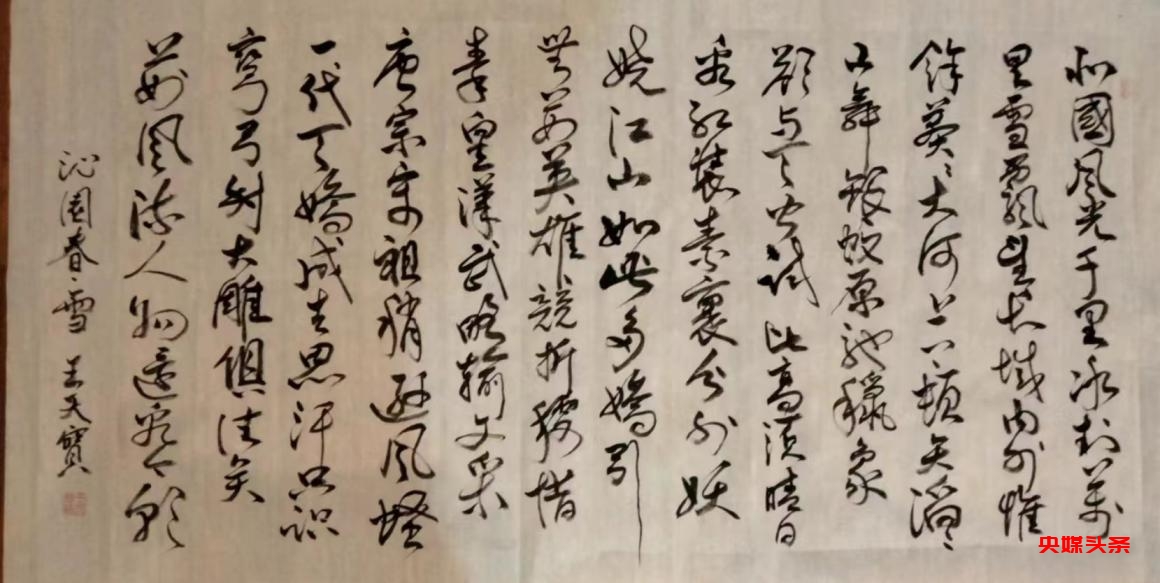 北國风光千里冰封萬
里雪飄望长城内外惟
馀莽々大河上下顿失滔々
山舞银蛇原驰蠟象
欲与天公试比高须晴日
看红装素裹分外妖
娆江山如此多嬌引
無数英雄競折腰惜
秦皇漢武略输文采
唐宗宋祖稍逊风骚
一代天嬌成吉思汗只识
弯弓射大雕俱往矣
数风流人物还看今朝
沁園春雪 王天寶
央媒头条